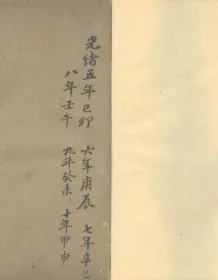 光緒五年己卯 六年庚辰 七年辛巳
八年壬午 九年癸未 十年甲申